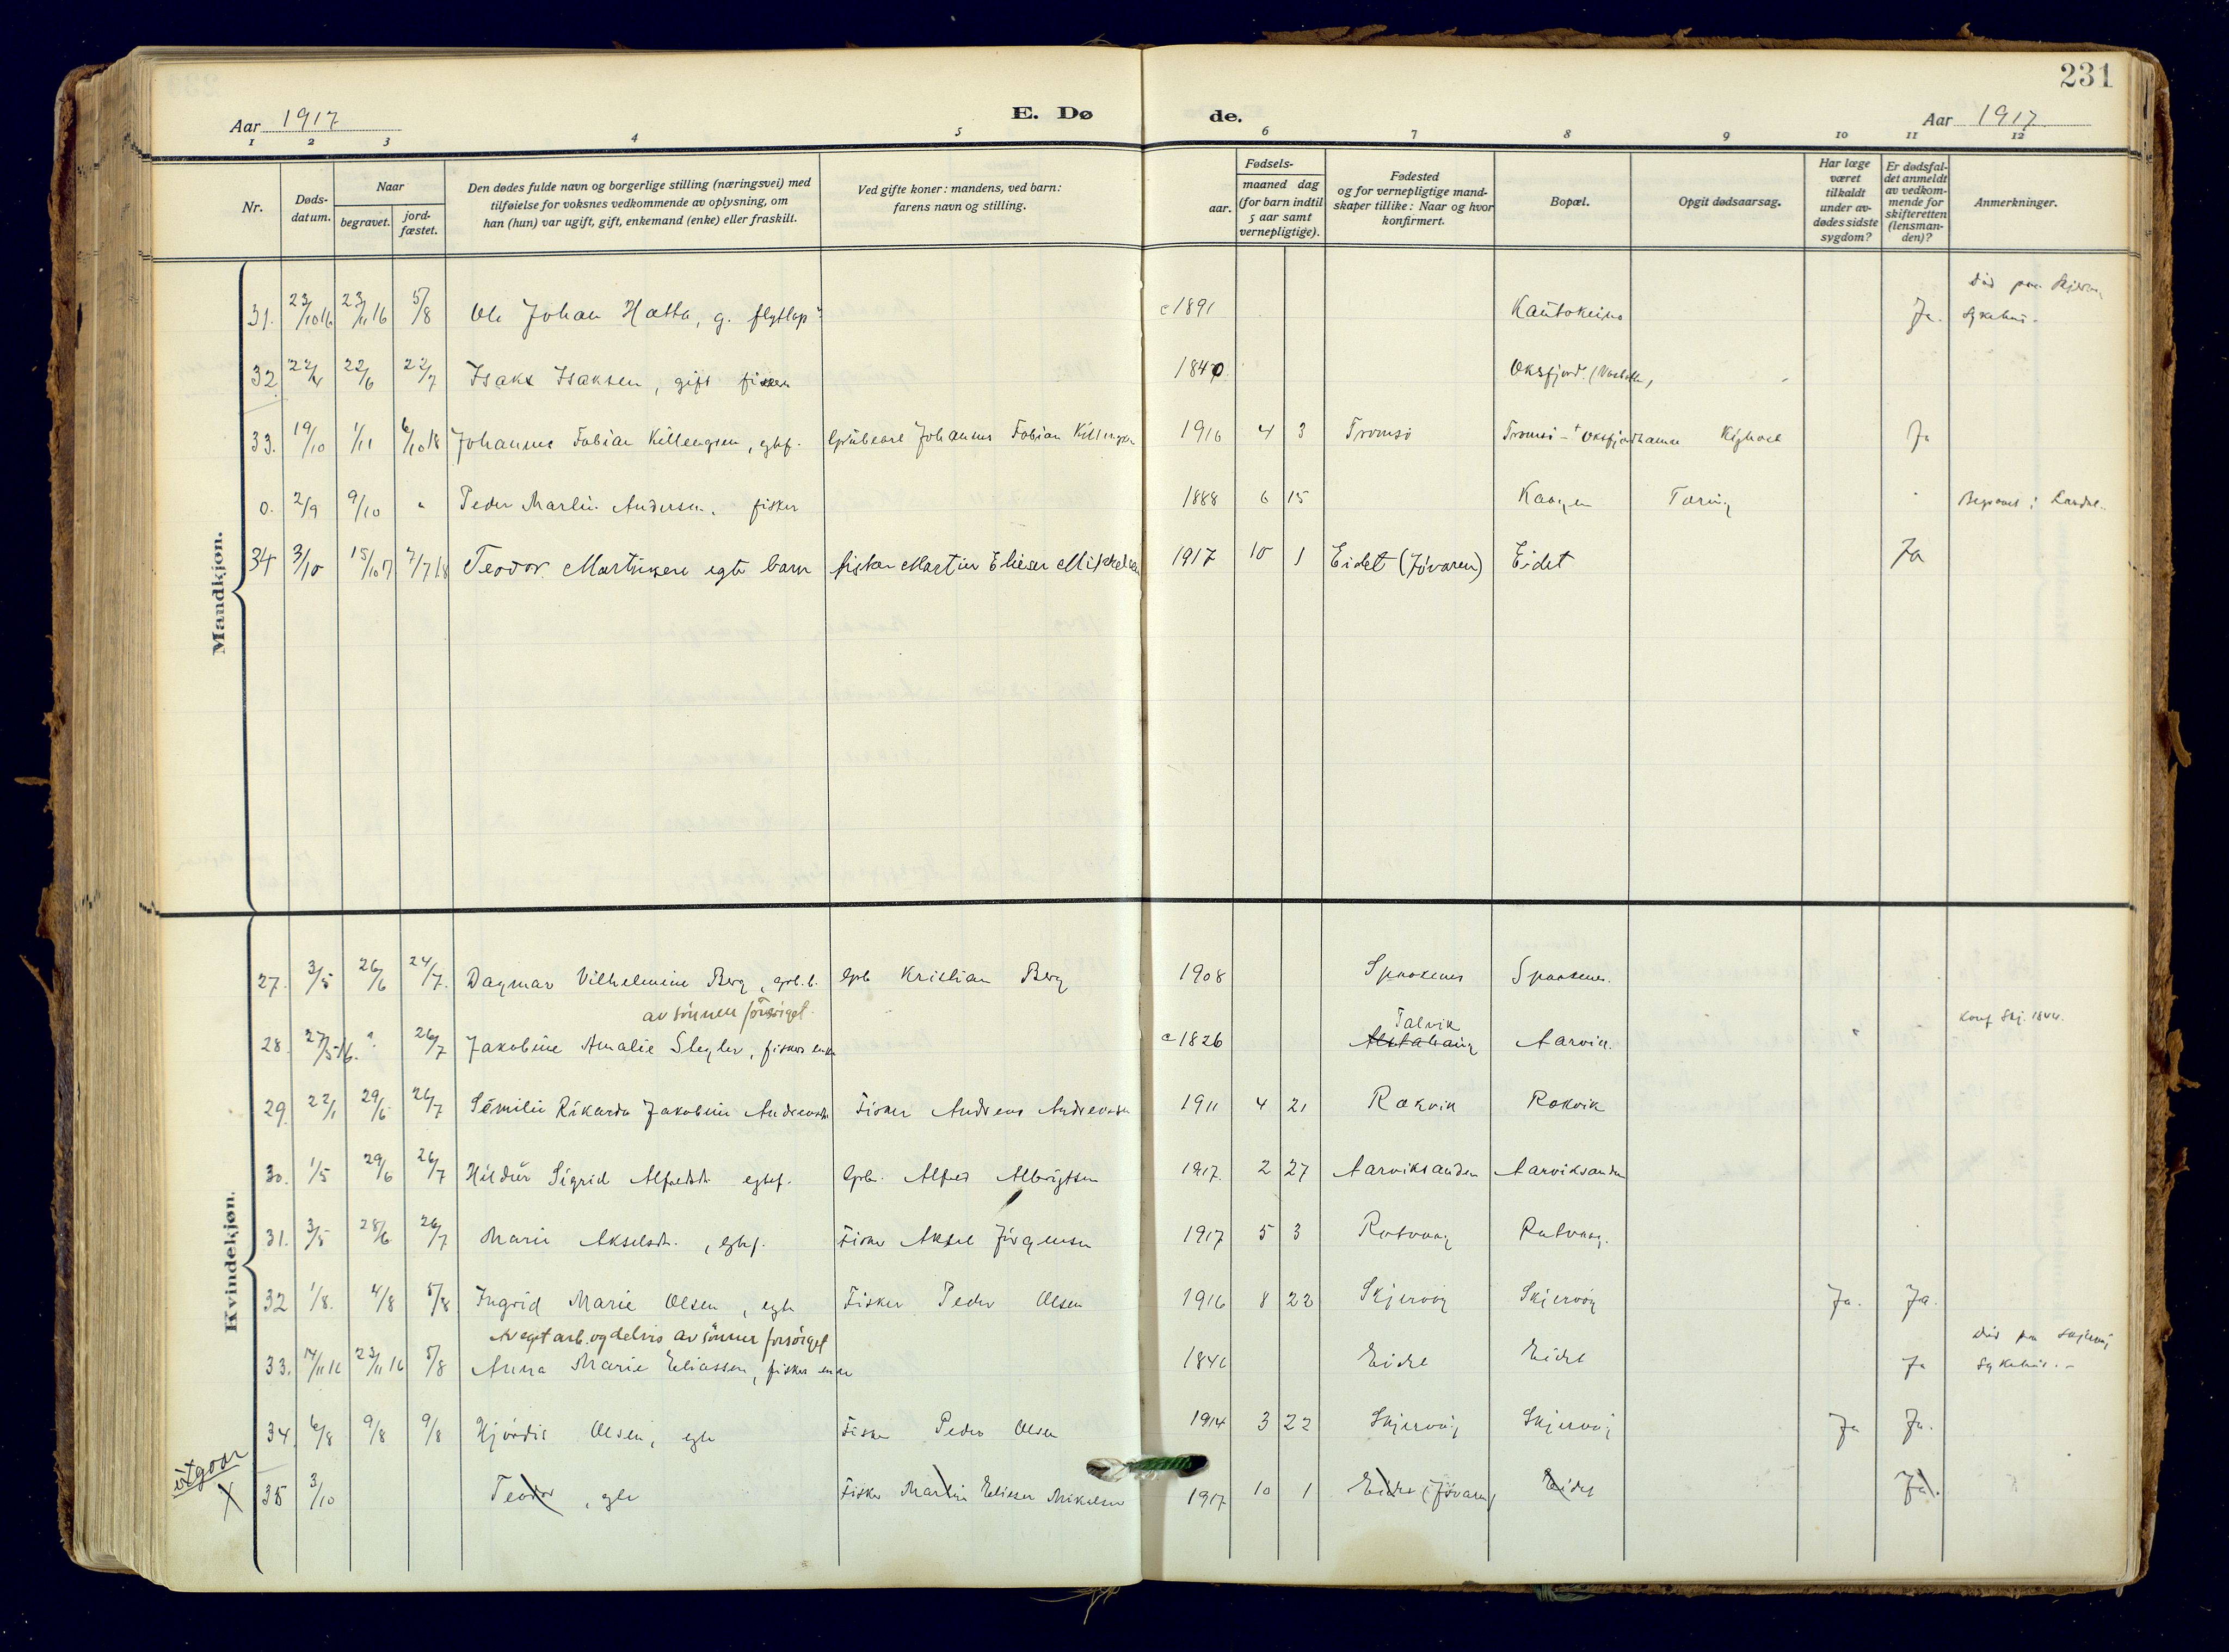 231
Aar 1917
E. Dø
de.
Aar 1917
1 2 3 4 5 6 7 8 9 10 11 12
Nr.
Døds-
datum.
Naar
begravet.
jord-
fæstet.
Den dødes fulde navn og borgerlige stilling (næringsvei) med
tilføielse for voksnes vedkommende av oplysning, om
han (hun) var ugift, gift, enkemand (enke) eller fraskilt.
Ved gifte koner: mandens, ved barn:
farens navn og stilling.
Fødsels-
aar.
maaned dag
(for barn indtil
5 aar samt
vernepligtige).
Fødested
og for vernepligtige mand-
skaper tillike: Naar og hvor
konfirmert.
Bopæl.
Opgit dødsaarsag.
Har læge
været
tilkaldt
under av-
dødes sidste
sygdom?
Er dødsfal-
det anmeldt
av vedkom-
mende for
skifteretten
(lensman-
den)?
Anmerkninger.
Mandkjøn.
31. 23/10 16 23/11 16 5/8 Ole Johan Hætta, g. c 1891 Kautokeino Ja. Død paa Skjervøy
Sykehus.
32 22/4 22/6 22/7 Isak Isaksen, gift fisker 1840 Oksfjord.
33. 19/10 1/11 6/10 18 Johannes Fabian Killengren, egtf. Johannes Fabian Killengren 1916 4 3 Tromsø Tromsø - † Oksfjordhamn Kighoste Ja
0. 2/9 9/10 " Peder Martin Andersen, fisker 1888 6 15 Kaagen Tæring Begravet i
34 3/10 15/10 17 7/7 18 Teodor Martinsen egte barn fisker Martin Elieser Mikkelsen 1917 10 1 Eidet (Jøvaren) Eidet Ja
Kvindekjøn.
27. 3/5 26/6 24/7. Dagmar Vilhelmine Berg, grb. b. Grb Kristian Berg 1908 Spaakenes Spaakenes.
av sønnen forsørget.
28. 27/5-16. ? 26/7 Jakobine Amalie Stegler, fiskers enke c 1826 Talvik
Alstahaug Aarvik. Konf Skj. 1844.
29. 22/1 29/6 26/7 Semilie Rikarda Jakobine Andreasdtr Fisker Andreas Andreassen 1911 4 21 Rakvik Rakvik
30. 1/5 29/6 26/7 Hildur Sigrid Alfredsdtr egtef. Grbr. Alfred Albrigtsen 1917. 2 27 Aarviksanden Aarviksanden
31. 3/5 28/6 26/7 Marie Akselsdtr., egtef. Fisker Aksel Jørgensen 1917 5 3 Rotvaag Rotvaag.
32 1/8. 4/8 5/8 Ingrid Marie Olsen, egte Fisker Peder Olsen 1916 8 22 Skjervøy Skjervøy Ja. Ja.
Av eget arb. og delvis av sønner forsørget
33. 14/11 16 23/11 16 5/8 Anna Marie Eliassen, fiskers enke 1846 Eidet Eidet Ja Død paa Skjervøy
Sykehus.
34. 6/8 9/8 9/8 Hjørdis Olsen, egte Fisker Peder Olsen 1914 3 22 Skjervøy Skjervøy Ja Ja.
utgaar
X 35 3/10 Teodor, egte Fisker Martin Elieser Mikalsen 1917 10 1 Eidet (Jøvaren) Eidet Ja.